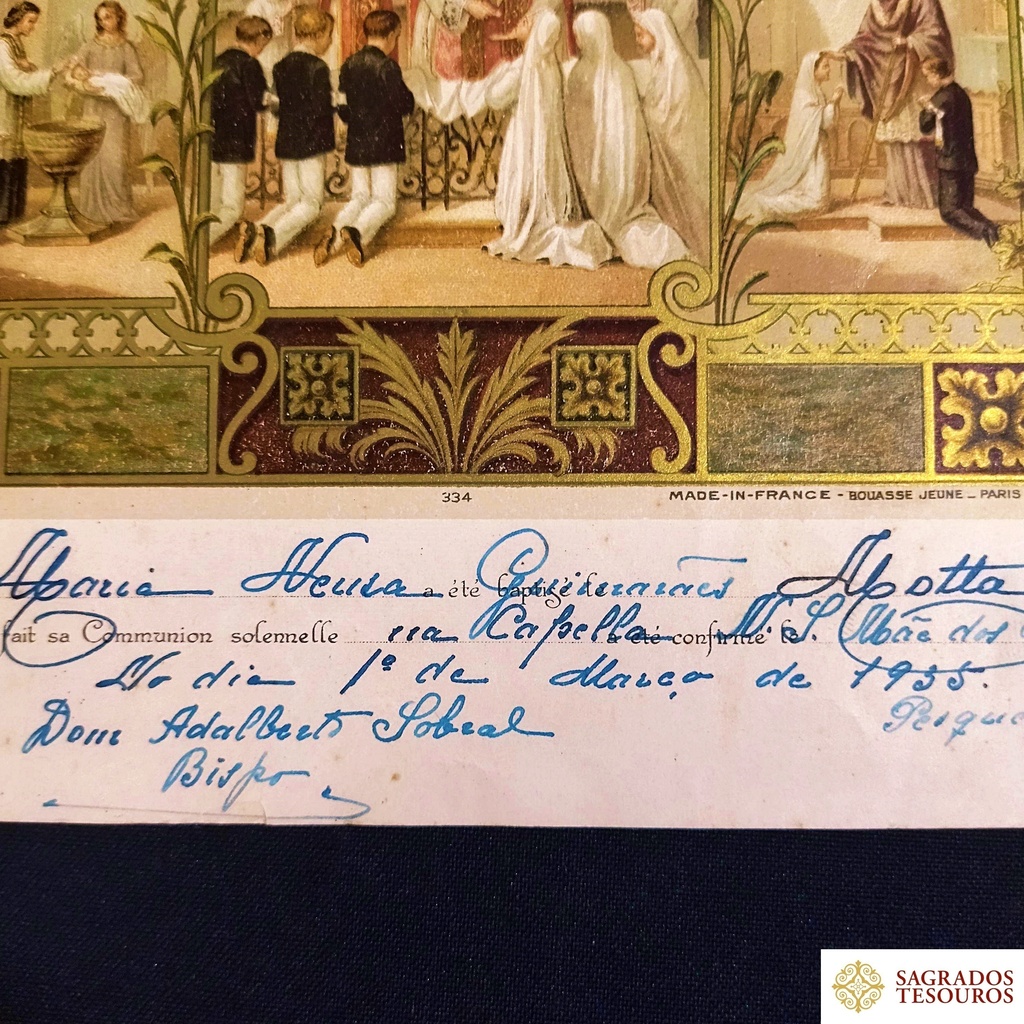 334
MADE-IN-FRANCE - BOUASSE JEUNE _ PARIS
a été baptisé le
Maria Neusa Guimarães Motta
fait sa Communion solennelle a été confirmé le
na Capella N. S. Mãe dos
No dia 1º de Março de 1935.
Dom Adalberto Sobral
Bispo
SAGRADOS
TESOUROS